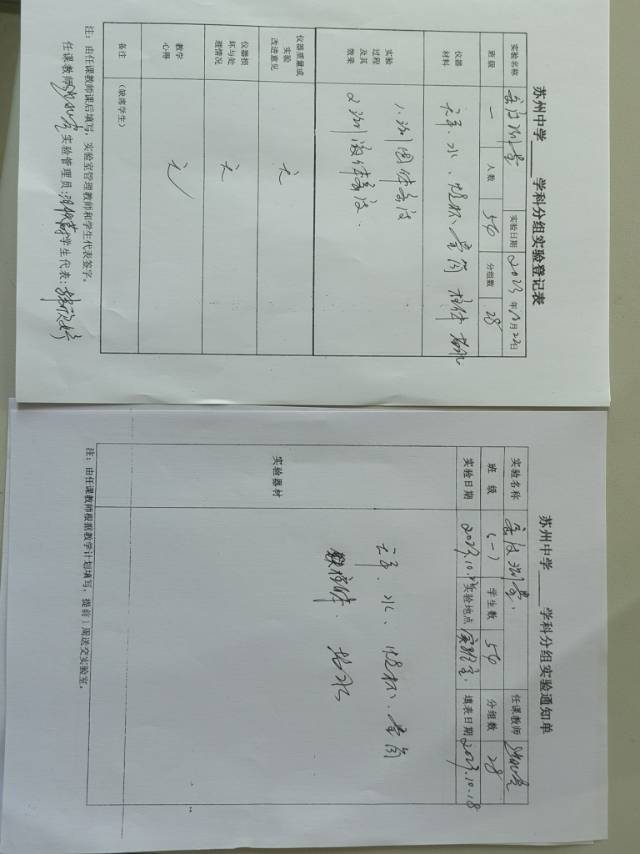 苏州中学____学科分组实验登记表
实验名称 密度测量 实验日期 2023年10月23日
班级 一 人数 54 分组数 28
仪器材料 天平、水、烧杯、量筒
实验过程及其效果 1、测固体密度
2、测液体密度.
仪器质量或实验改进意见 无
仪器损坏与处理情况 无
教学心得 无
备注 (缺席学生)
注:由任课教师课后填写,实验室管理教师和学生代表签字。
任课教师: 实验管理员: 学生代表:
苏州中学____学科分组实验通知单
实验名称 密度测量. 任课教师
班级 (一) 学生数 54 分组数 28
实验日期 2023.10. 实验地点 实验室. 填表日期 2023.10.18
实验器材 天平、水、烧杯、量筒
注:由任课教师根据教学计划填写,提前1周送交实验室。